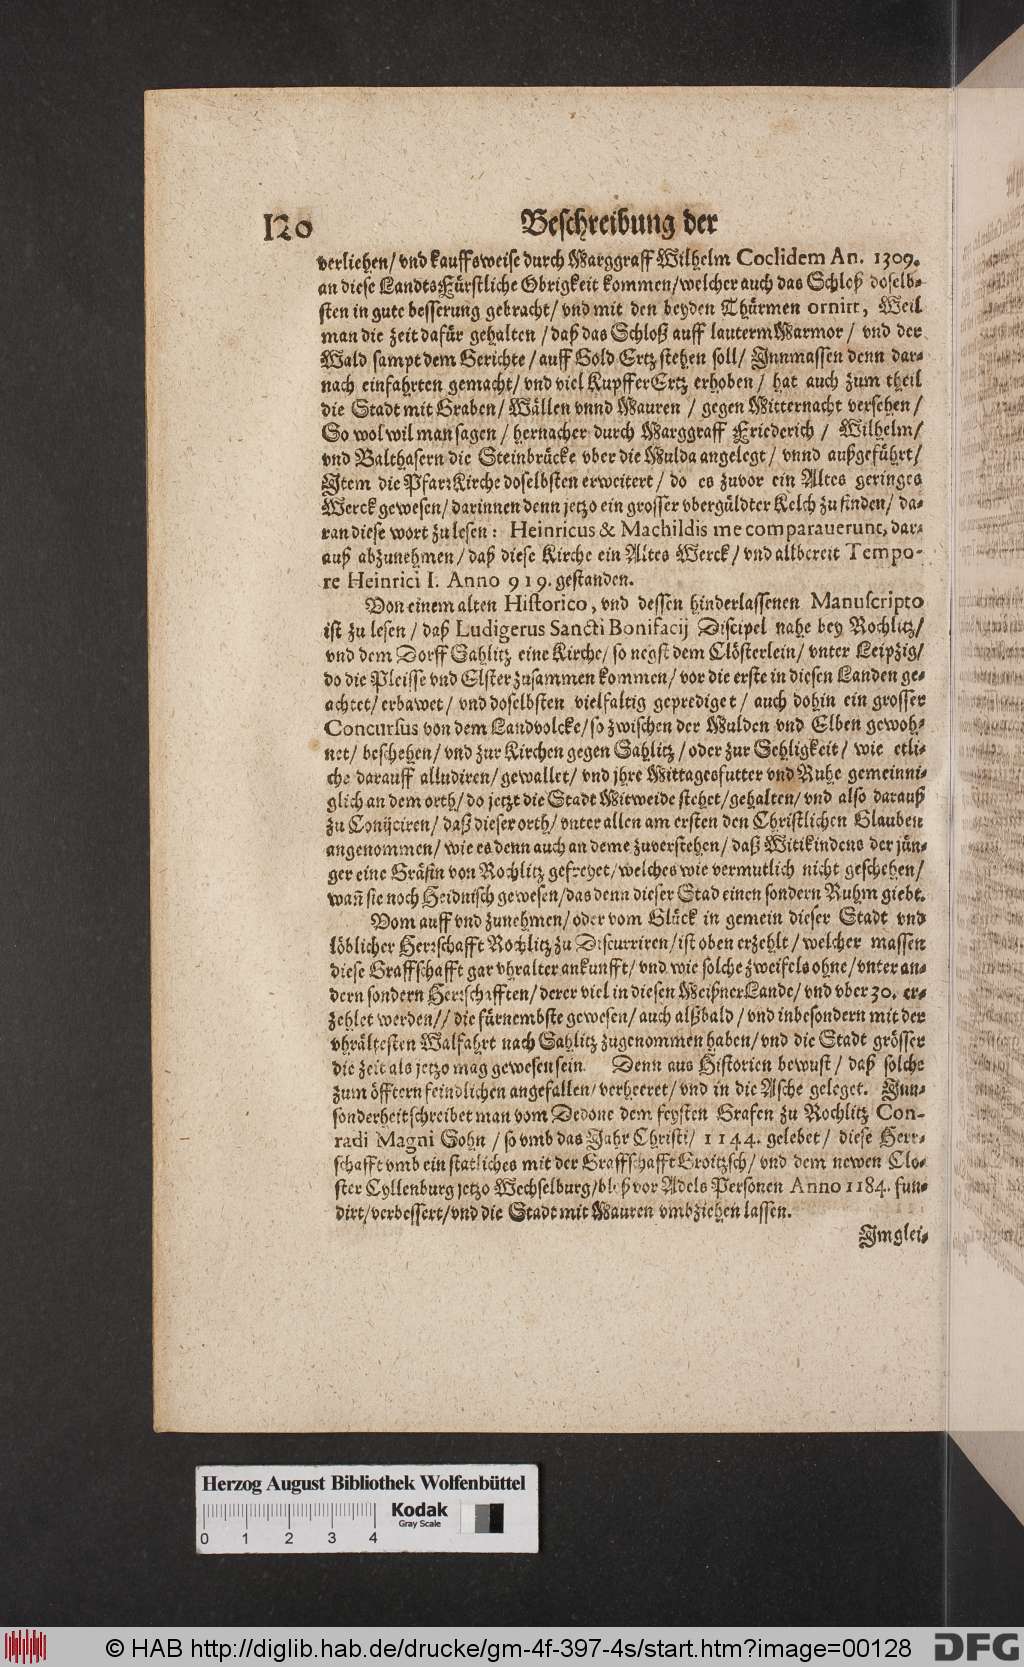 120 Beschreibung der
verliehen/ vnd kauffsweise durch Marggraff Wilhelm Coclidem An. 1309.
an diese LandtsFürstliche Obrigkeit kommen/ welcher auch das Schloß doselb-
sten in gute besserung gebracht/ vnd mit den beyden Thürmen ornirt, Weil
man die zeit dafür gehalten / daß das Schloß auff lauterm Marmor / vnd der
Wald sampt dem Gerichte / auff Gold Ertz stehen soll/ Innmassen denn dar-
nach einfahrten gemacht/ vnd viel KupfferErtz erhoben / hat auch zum theil
die Stadt mit Graben/ Wällen vnnd Mauren / gegen Mitternacht versehen /
So wol wil man sagen / hernacher durch Marggraff Friederich / Wilhelm/
vnd Balthasern die Steinbrücke vber die Mulda angelegt / vnnd außgeführt/
Item die PfarrKirche doselbsten erweitert / do es zuvor ein Altes geringes
Werck gewesen/ darinnen denn jetzo ein grosser vbergüldter Kelch zu finden / da-
ran diese wort zu lesen: Heinricus & Machildis me comparauerunt, dar-
auß abzunehmen / daß diese Kirche ein Altes Werck / vnd allbereit Tempo-
re Heinrici I. Anno 919. gestanden.
Von einem alten Historico, vnd dessen hinderlassenen Manuscripto
ist zu lesen / daß Ludigerus Sancti Bonifacij Discipel nahe bey Rochlitz/
vnd dem Dorff Sahlitz eine Kirche/ so negst dem Clösterlein/ vnter Leipzig/
do die Pleisse vnd Elster zusammen kommen / vor die erste in diesen Landen ge-
achtet/ erbawet/ vnd doselbsten vielfaltig geprediget / auch dohin ein grosser
Concursus von dem Landvolcke/ so zwischen der Mulden vnd Elben gewoh-
net/ beschehen/ vnd zur Kirchen gegen Sahlitz / oder zur Sehligkeit / wie etli-
che darauff alludiren/ gewallet/ vnd jhre Mittagesfutter vnd Ruhe gemeinni-
glich an dem orth/ do jetzt die Stadt Mitweide stehet/ gehalten/ vnd also darauß
zu Conijciren/ daß dieser orth/ vnter allen am ersten den Christlichen Glauben
angenommen/ wie es denn auch an deme zuverstehen/ daß Witikindens der jün-
ger eine Gräfin von Rochlitz gefreyet/ welches wie vermutlich nicht geschehen/
wañ sie noch Heidnisch gewesen/ das denn dieser Stad einen sondern Ruhm giebt.
Vom auff vnd zunehmen/ oder vom Glück in gemein dieser Stadt vnd
löblicher Herrschafft Rochlitz zu Discurriren/ ist oben erzehlt / welcher massen
diese Graffschafft gar vhralter ankunfft/ vnd wie solche zweifels ohne/ vnter an-
dern sondern Herrschafften/ derer viel in diesen MeißnerLande/ vnd vber 30. er-
zehlet werden// die fürnembste gewesen/ auch alßbald / vnd inbesondern mit der
vhrältesten Walfahrt nach Sahlitz zugenommen haben/ vnd die Stadt grösser
die zeit als jetzo mag gewesen sein. Denn aus Historien bewust / daß solche
zum öfftern feindlichen angefallen/ verheeret/ vnd in die Asche geleget. Jnn-
sonderheit schreibet man vom Dedone dem feysten Grafen zu Rochlitz Con-
radi Magni Sohn / so vmb das Jahr Christi/ 1144. gelebet / diese Herr-
schafft vmb ein statliches mit der Graffschafft Groitzsch/ vnd dem newen Clo-
ster Cyllenburg jetzo Wechselburg/ bloß vor Adels Personen Anno 1184. fun-
dirt/ verbessert/ vnd die Stadt mit Mauren vmbziehen lassen.
Jmglei-
Herzog August Bibliothek Wolfenbüttel
Kodak
Gray Scale
0 1 2 3 4
© HAB http://diglib.hab.de/drucke/gm-4f-397-4s/start.htm?image=00128
DFG